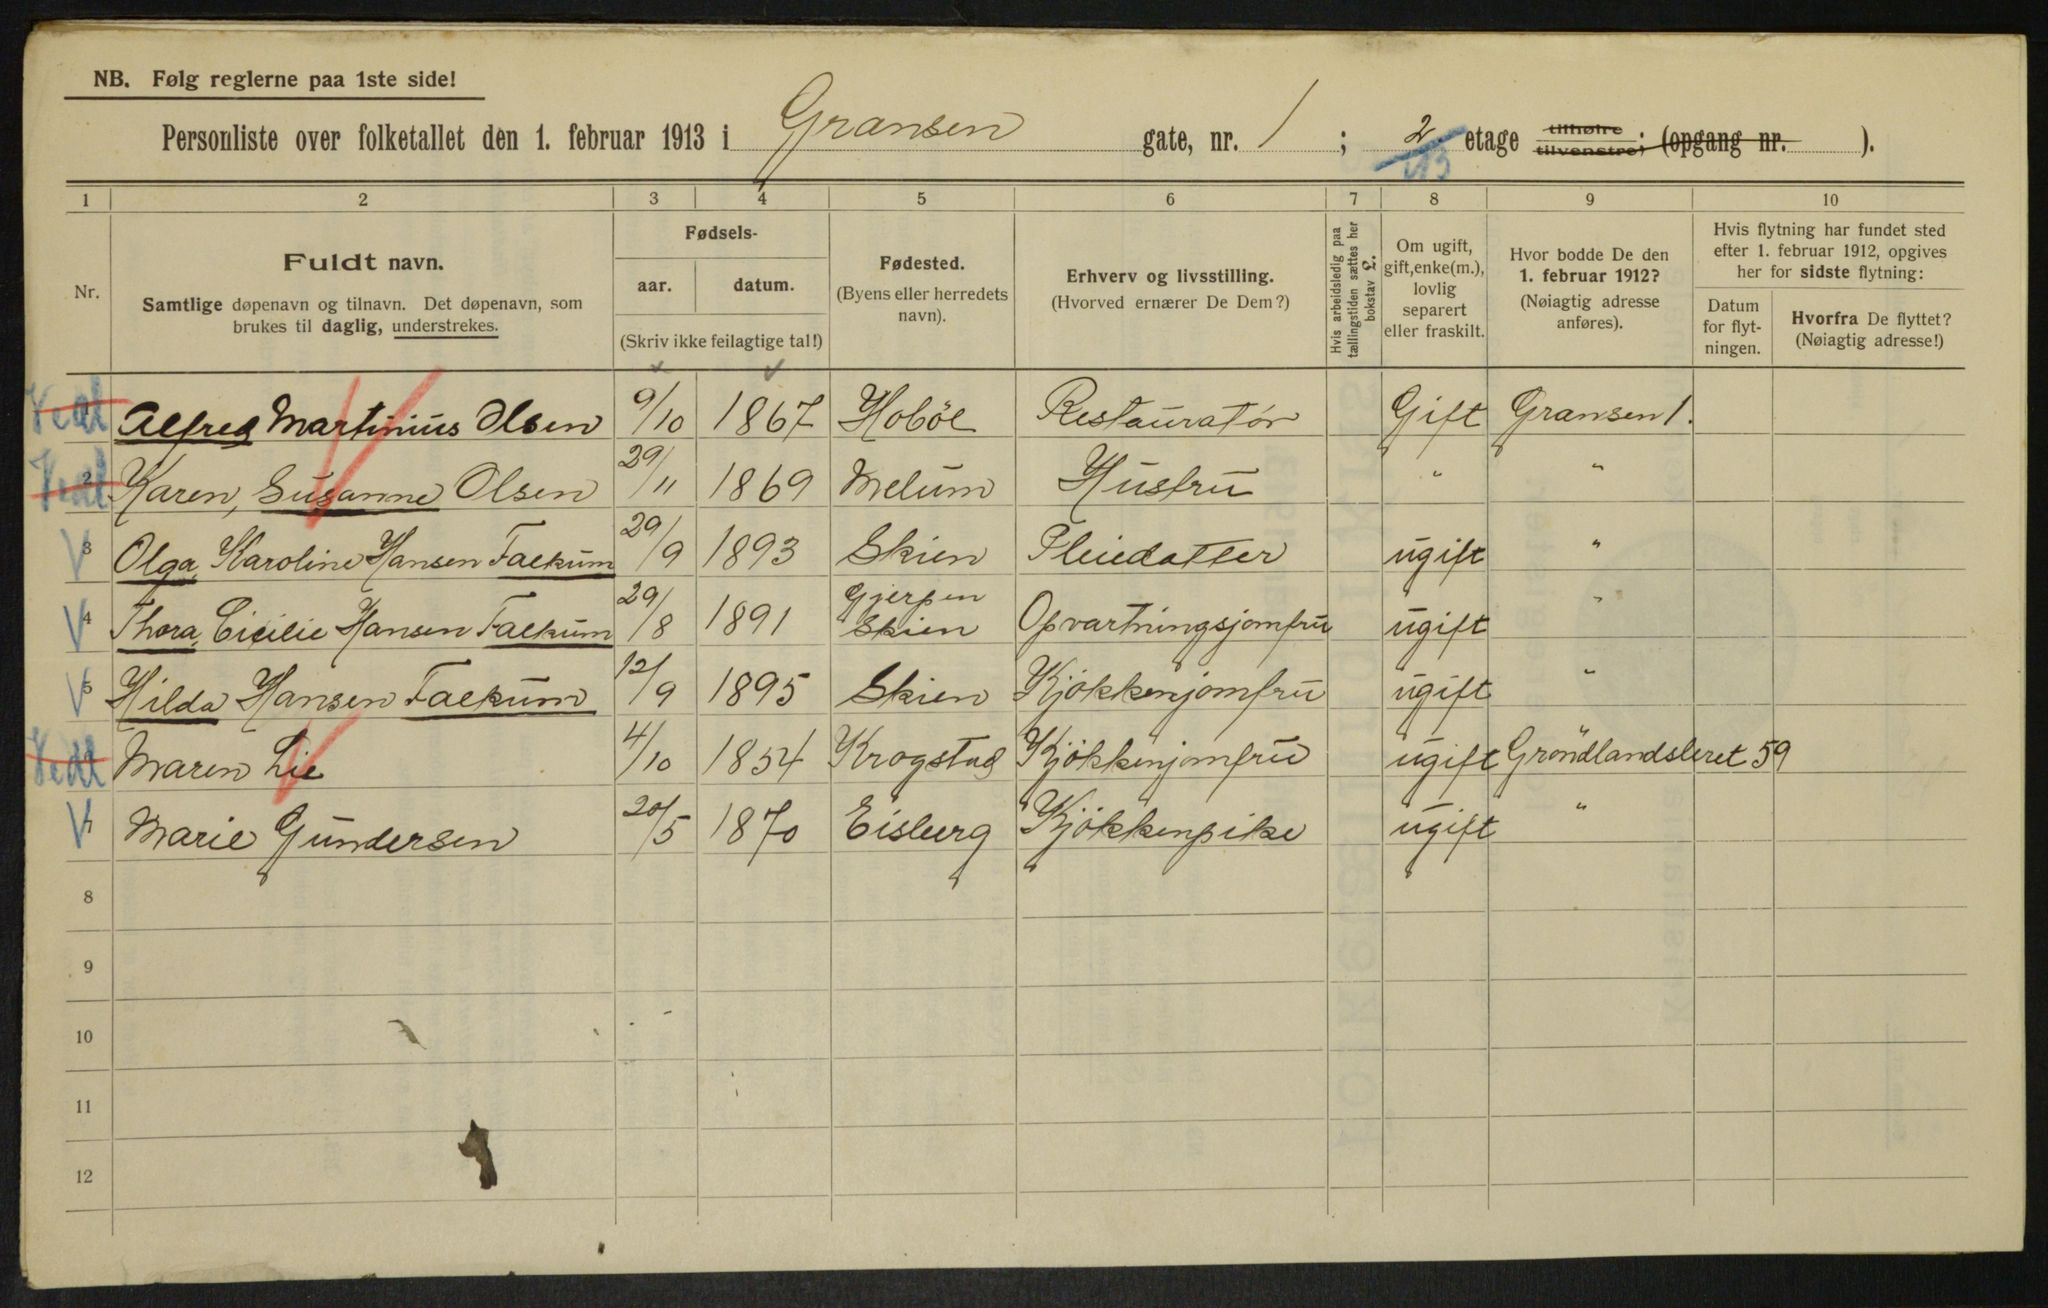 NB. Følg reglerne paa 1ste side!
Personliste over folketallet den 1. februar 1913 i Gransen gate, nr. 1 ; 2 etage tilhøire tilvenstre; (opgang nr. ).
1 2 3 4 5 6 7 8 9 10
Nr.
Fuldt navn.
Samtlige døpenavn og tilnavn. Det døpenavn, som
brukes til daglig, understrekes.
Fødsels-
aar. datum.
(Skriv ikke feilagtige tal!)
Fødested.
(Byens eller herredets
navn).
Erhverv og livsstilling.
(Hvorved ernærer De Dem?)
Hvis arbeidsledig paa
tællingstiden sættes her
bokstav L.
Om ugift,
gift, enke(m.),
lovlig
separert
eller fraskilt.
Hvor bodde De den
1. februar 1912?
(Nøiagtig adresse
anføres).
Hvis flytning har fundet sted
efter 1. februar 1912, opgives
her for sidste flytning:
Datum
for flyt-
ningen.
Hvorfra De flyttet?
(Nøiagtig adresse!)
1 Alfred Martinius Olsen 9/10 1867 Hobøl Restauratør Gift Gransen 1.
2 Karen, Susanne Olsen 29/11 1869 Melum Hustru " "
3 Olga, Karoline Hansen Falkum 29/9 1893 Skien Pleiedatter ugift "
4 Thora, Cicilie Hansen Falkum 29/8 1891 Gjerpen Skien Opvartningsjomfru ugift "
5 Hilda Hansen Falkum 12/9 1895 Skien Kjøkkenjomfru ugift "
Maren Lie 4/10 1854 Krogstad Kjökkenjomfru ugift Gröndlandsleret 59
7 Marie Gundersen 20/5 1870 Eisberg Kjökkenpike ugift "
8
9
10
11
12